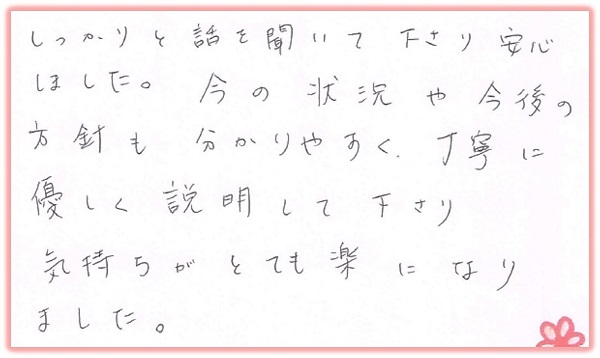 しっかりと話を聞いて下さり安心
しました。今の状況や今後の
方針も分かりやすく、丁寧に
優しく説明して下さり
気持ちがとても楽になり
ました。